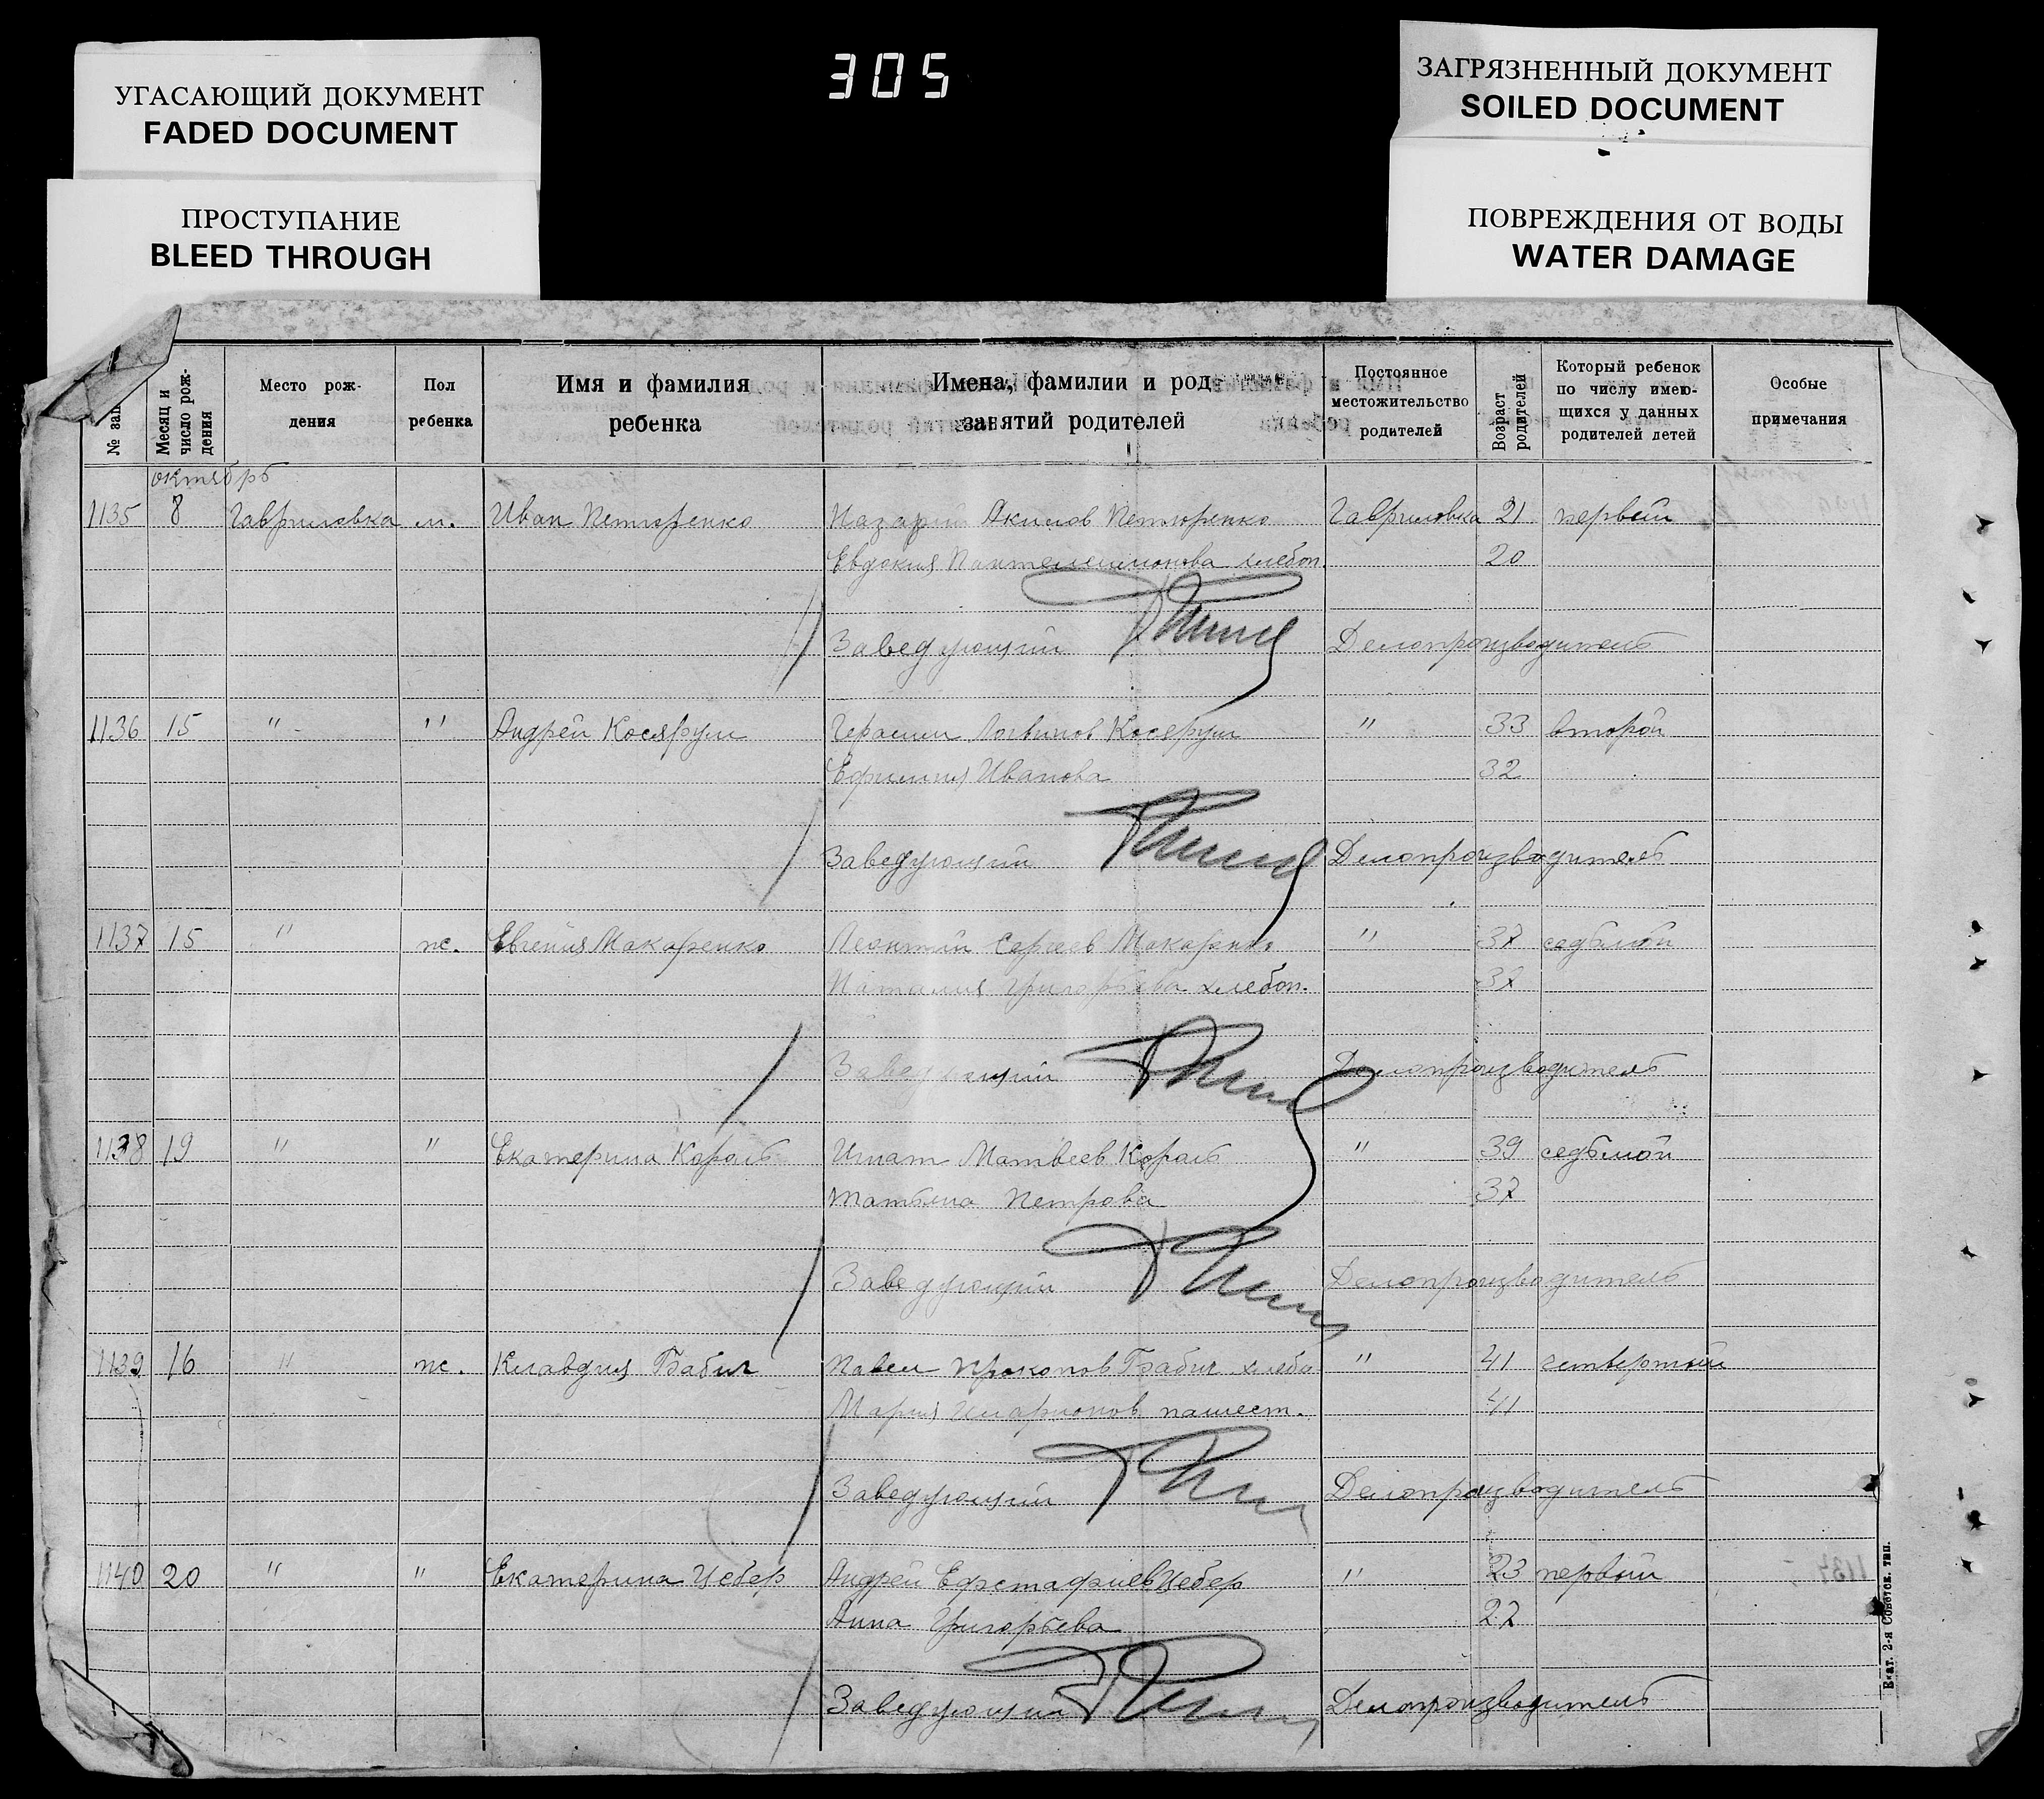 305
УГАСАЮЩИЙ ДОКУМЕНТ
FADED DOCUMENT
ПРОСТУПАНИЕ
BLEED THROUGH
ЗАГРЯЗНЕННЫЙ ДОКУМЕНТ
SOILED DOCUMENT
ПОВРЕЖДЕНИЯ ОТ ВОДЫ
WATER DAMAGE
№ зап
Месяц и число рож-дения
Место рож-дения
Пол ребенка
Имя и фамилия ребенка
Имена, фамилии и род занятий родителей
Постоянное местожительство родителей
Возраст родителей
Который ребенок по числу имею-щихся у данных родителей детей
Особые примечания
октябрь
1135 8 Гавриловка м. Иван Петюренко Назарий Акимов Петюренко Гавриловка 21 первый
Евдокия Пантелеимонова хлебоп. 20
Заведующий Делопроизводитель
1136 15 " " Андрей Косярум Герасим Логвинов Косярум " 33 второй
Ефимия Иванова 32
Заведующий Делопроизводитель
1137 15 " ж. Евгения Макаренко Леонтий Сергеев Макаренко " 37 седьмой
Наталия Григорьева хлебоп. 37
Заведующий Делопроизводитель
1138 19 " " Екатерина Король Игнат Матвеев Король " 39 седьмой
Татьяна Петрова 37
Заведующий Делопроизводитель
1139 16 " ж. Клавдия Бабич Павел Прокопов Бабич хлебо " 41 четвертый
Мария Иларионов 41
Заведующий Делопроизводитель
1140 20 " " Екатерина Цебер Андрей Ефстафиев Цебер " 23 первый
Анна Григорьева 27
Заведующий Делопроизводитель
Екат. 2-я Советск. тип.